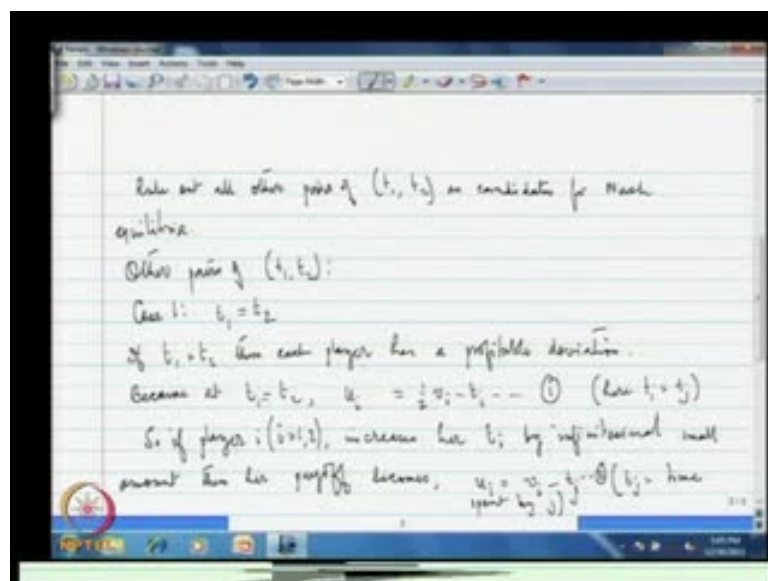 Rule out all other pairs of (t₁, t₂) as candidates for Nash
equilibria.
Other pairs of (t₁, t₂):
Case 1: t₁ = t₂
If t₁ = t₂ then each player has a profitable deviation.
Because at t₁ = t₂, uᵢ = ½ vᵢ - tᵢ -- ① (here tᵢ = tⱼ)
So if player i (i=1,2), increases her tᵢ by infinitesimal small
amount then her payoff becomes, uᵢ = vᵢ - tⱼ -- ② (tⱼ = time
spent by j)
NPTEL